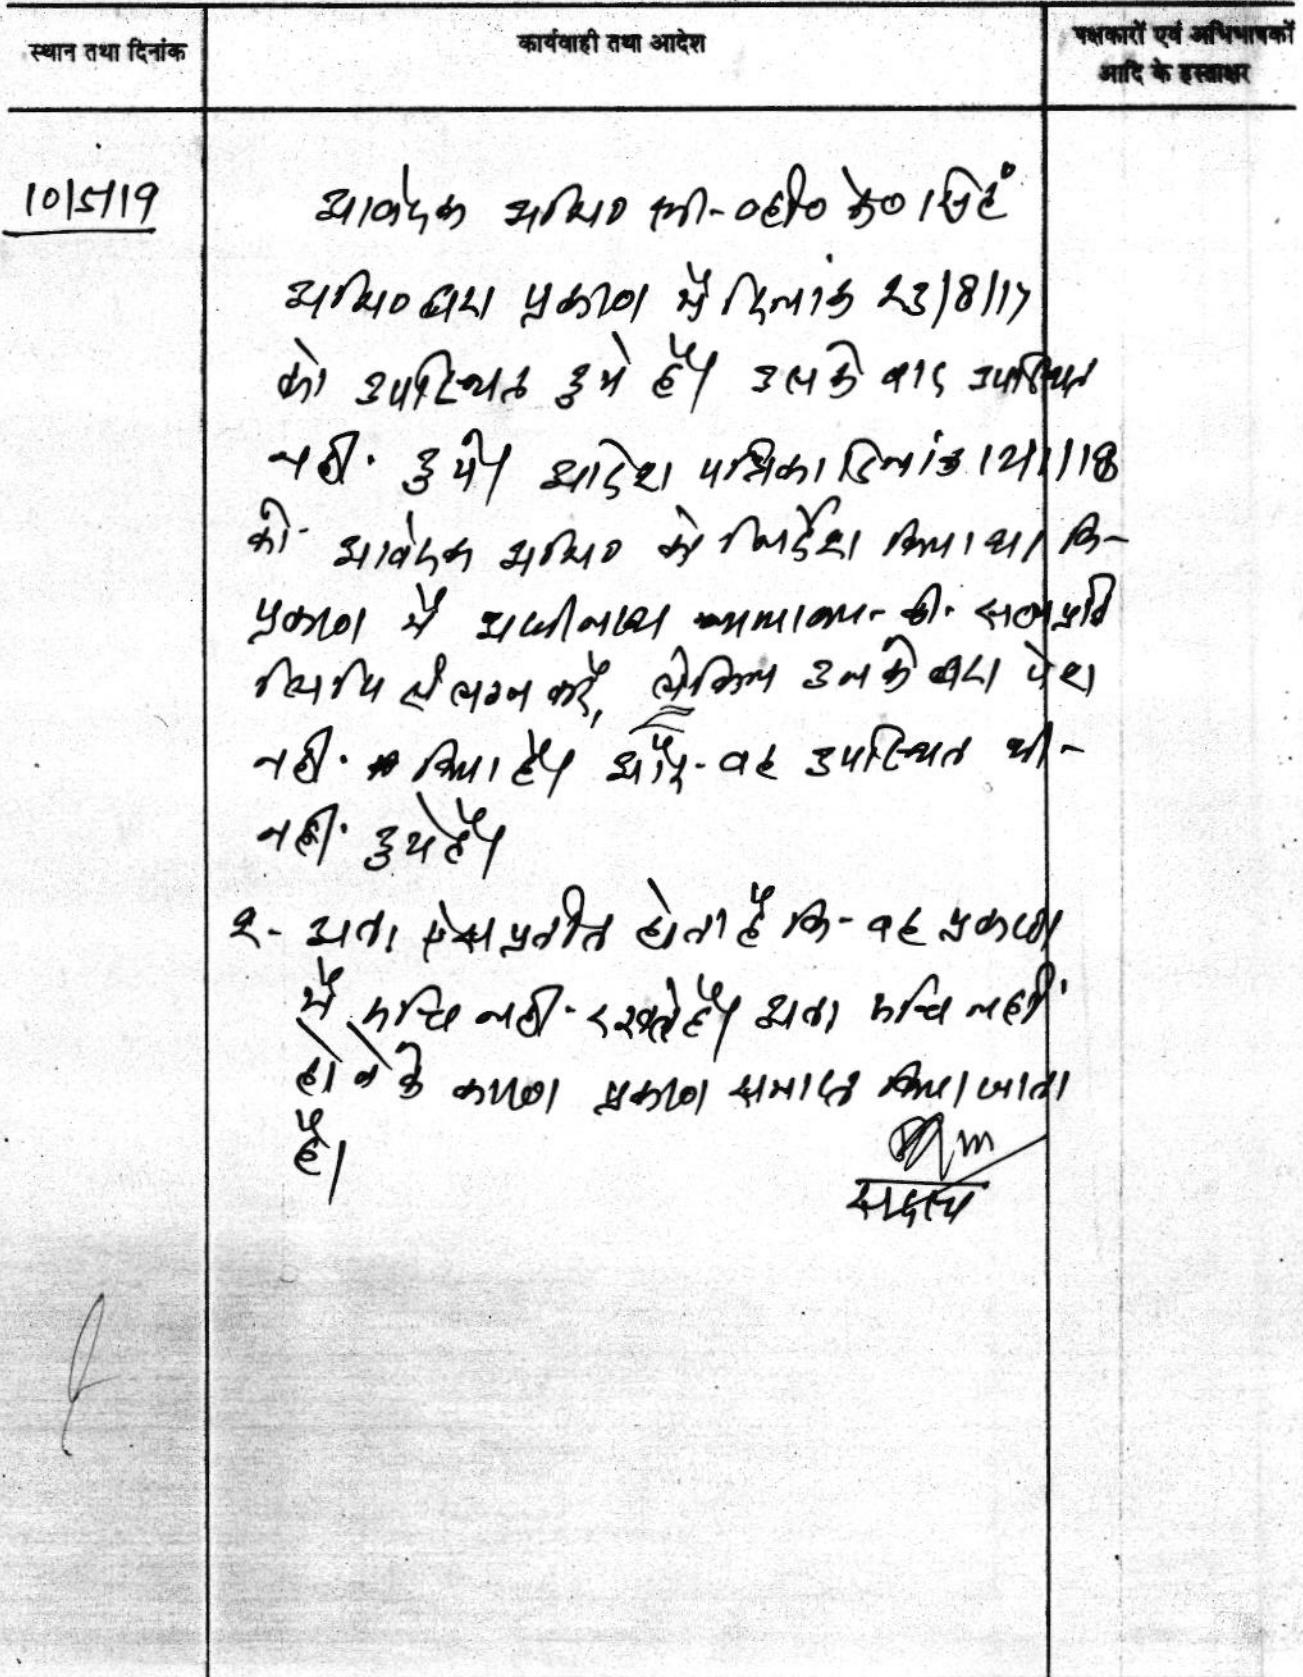 स्थान तथा दिनांक
कार्यवाही तथा आदेश
पक्षकारों एवं अभिभाषकों
आदि के हस्ताक्षर
10/5/19
आवेदक अभि० श्री व्ही० के० सिहं
अभि० द्वारा प्रकरण में दिनांक 23/8/17
को उपस्थित हुये हैं। उसके बाद उपस्थित
नहीं हुये। आदेश पत्रिका दिनांक 12/1/18
को आवेदक अभि० को निर्देश किया था कि
प्रकरण में अधीनस्थ न्यायालय की सत्यप्रति
लिपि संलग्न करें, लेकिन उनके द्वारा पेश
नहीं किया है। और वह उपस्थित भी
नहीं हुये हैं।
2- अतः ऐसा प्रतीत होता है कि वह प्रकरण
में रूचि नहीं रखते हैं। अतः रूचि नहीं
होने के कारण प्रकरण समाप्त किया जाता
है।
सदस्य